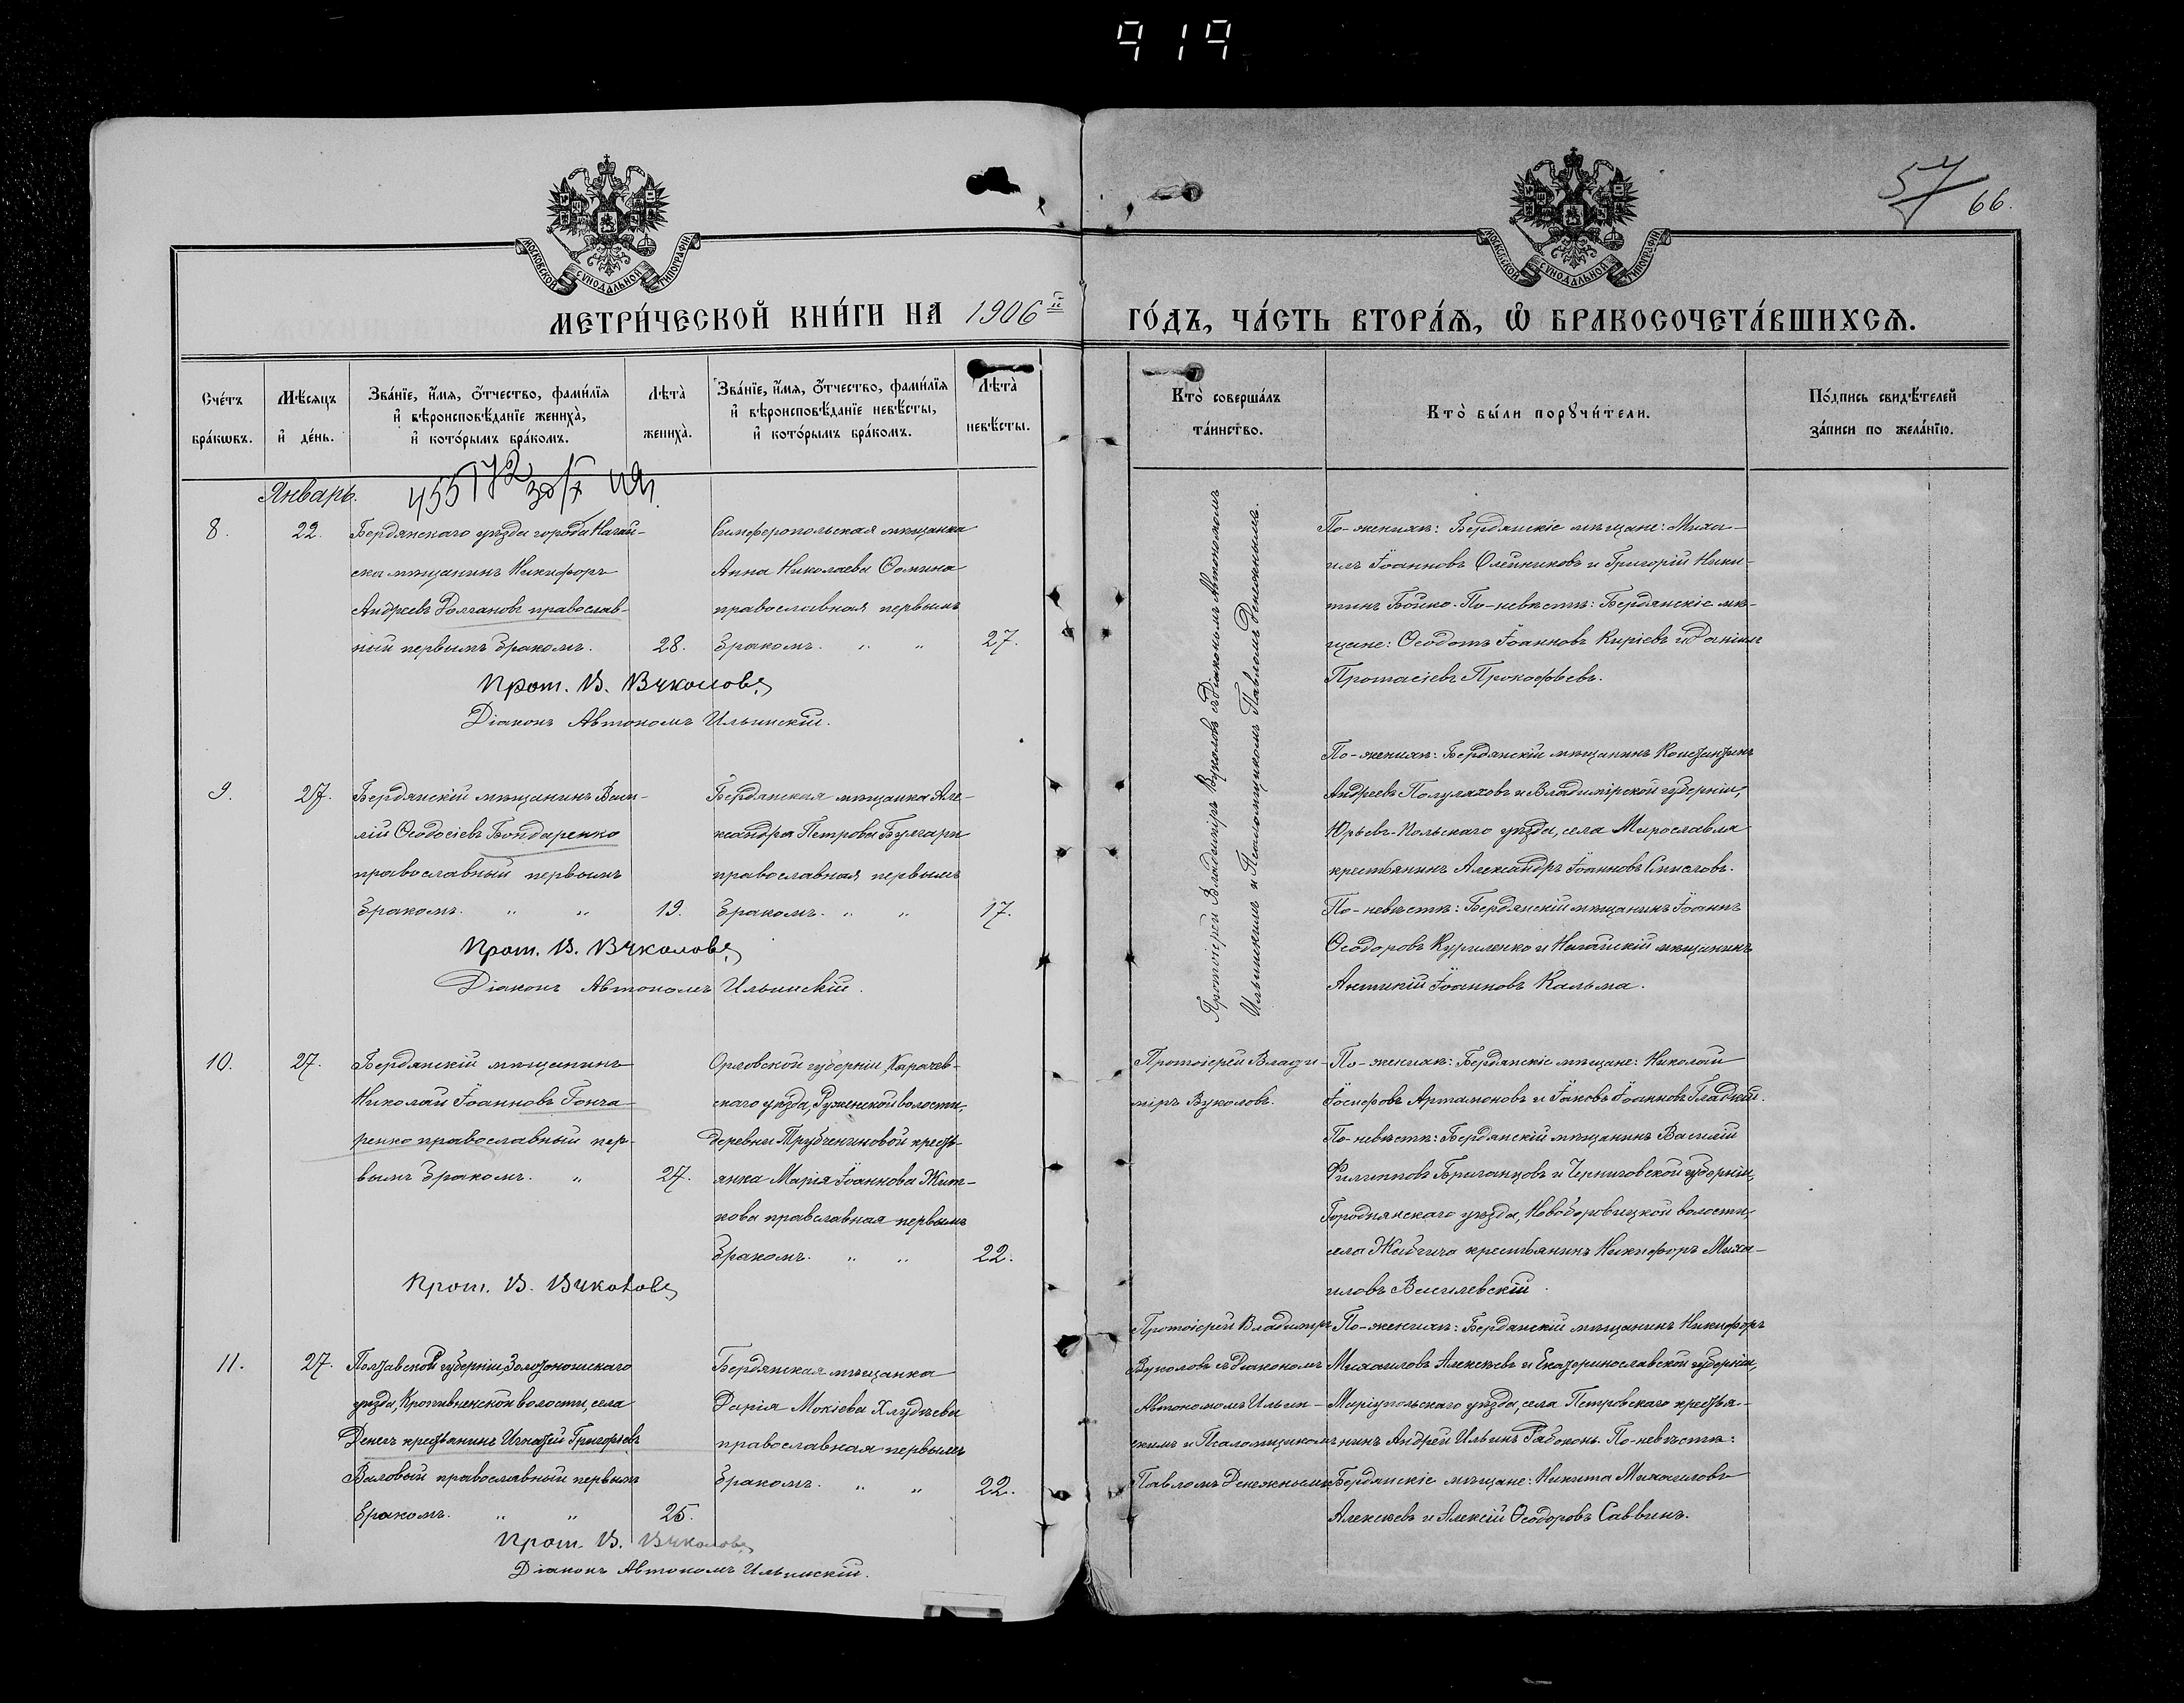 919
57
66.
МОСКОВСКОЙ СѴНОДАЛЬНОЙ ТИПОГРАФІИ
МОСКОВСКОЙ СѴНОДАЛЬНОЙ ТИПОГРАФІИ
МЕТРИ́ЧЕСКОЙ КНИ́ГИ НА 1906й
ГО́ДЪ, ЧА́СТЬ ВТОРА́Ѧ, Ѽ БРАКОСОЧЕТА́ВШИХСѦ.
Сче́тъ
бра́кѡвъ.
Мѣ́сяцъ
и҆ де́нь.
Зва́нїе, и҆́мя, ѻ҆́тчество, фами́лїя
и҆ вѣроисповѣ́данїе жениха̀,
и҆ кото́рымъ бра́комъ.
Лѣта̀
жениха̀.
Зва́нїе, и҆́мя, ѻ҆́тчество, фами́лїя
и҆ вѣроисповѣ́данїе невѣ́сты,
и҆ кото́рымъ бра́комъ.
Лѣта̀
невѣ́сты.
Кто̀ соверша́лъ
та́инство.
Кто̀ бы́ли порꙋчи́тели.
По́дпись свидѣ́телей
за́писи по жела́нїю.
Январь.
8.
22.
Бердянскаго уѣзда города Нагай-
ска мѣщанинъ Никифоръ
Андреевъ Долгановъ православ-
ный первымъ бракомъ.
28.
Симферопольская мѣщанка
Анна Николаева Ѳомина
православная первымъ
бракомъ. " "
27.
Прот. В. Вуколовъ
Діаконъ Автономъ Ильинскій.
Протоіерей Владиміръ Вуколовъ съ Діакономъ Автономомъ
Ильинскимъ и Псаломщикомъ Павломъ Денежнымъ.
По-женихѣ: Бердянскіе мѣщане: Миха-
илъ Іоанновъ Олейниковъ и Григорій Ники-
тинъ Бойко. По-невѣстѣ: Бердянскіе мѣ-
щане: Ѳеодотъ Іоанновъ Киріевъ и Даніилъ
Протасіевъ Прокофьевъ.
9.
27.
Бердянскій мѣщанинъ Васи-
лій Ѳеодосіевъ Бондаренко
православный первымъ
бракомъ. " "
19.
Бердянская мѣщанка Але-
ксандра Петрова Булгари
православная первымъ
бракомъ. " "
17.
Прот. В. Вуколовъ
Діаконъ Автономъ Ильинскій.
По-женихѣ: Бердянскій мѣщанинъ Константинъ
Андреевъ Полуляховъ и Владимірской губерніи,
Юрьевъ-Польскаго уѣзда, села Мирославля
крестьянинъ Александръ Іоанновъ Смысловъ.
По-невѣстѣ: Бердянскій мѣщанинъ Іоаннъ
Ѳеодоровъ Куриленко и Ногайскій мѣщанинъ
Іоанновъ Кальма.
10.
27.
Бердянскій мѣщанинъ
Николай Іоанновъ Гонча-
ренко православный пер-
вымъ бракомъ. "
27.
Орловской губерніи, Карачев-
скаго уѣзда, Руженской волости,
деревни Трубчениновой кресть-
янка Марія Іоаннова Жит-
кова православная первымъ
бракомъ. " "
22.
Прот. В. Вуколовъ
Протоіерей Влади-
міръ Вуколовъ.
По-женихѣ: Бердянскіе мѣщане: Николай
Іосифовъ Артамоновъ и Іаковъ Іоанновъ Гладкій.
По-невѣстѣ: Бердянскій мѣщанинъ Василій
Филипповъ Бриганцовъ и Черниговской губерніи,
Городнянскаго уѣзда, Новоборовицкой волости,
села крестьянинъ Никифоръ Миха-
иловъ Василевскій.
11.
27.
Полтавской губерніи, Золотоношскаго
уѣзда, Кропивненской волости, села
Денегъ крестьянинъ Игнатій Григорьевъ
Валовый православный первымъ
бракомъ. " "
25.
Бердянская мѣщанка
Дарія Мокіева Хлудѣева
православная первымъ
бракомъ. " "
22.
Прот. В. Вуколовъ
Діаконъ Автономъ Ильинскій.
Протоіерей Владиміръ
Вуколовъ съ Діакономъ
Автономомъ Ильин-
скимъ и Псаломщикомъ
Павломъ Денежнымъ
По-женихѣ: Бердянскій мѣщанинъ Никифоръ
Михаиловъ Алексѣевъ и Екатеринославской губерніи,
Маріупольскаго уѣзда, села Петровскаго крестья-
нинъ Андрей Ильинъ Рабоконь. По-невѣстѣ:
Бердянскіе мѣщане: Никита Михаиловъ
Алексѣевъ и Алексій Ѳеодоровъ Саввинъ.